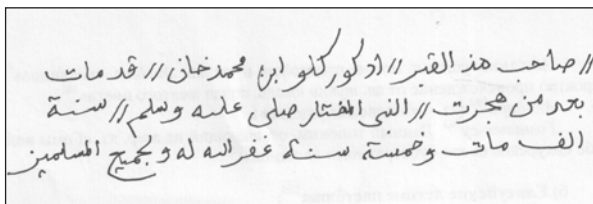 // صاحب هذ القبر // اد كور كلو ابن محمد خان // قد مات
بعد من هجرت // النبى المختار صلى عليه وسلم // سنة
الف مات وخمسة سنة غفر الله له ولجميع المسلمين